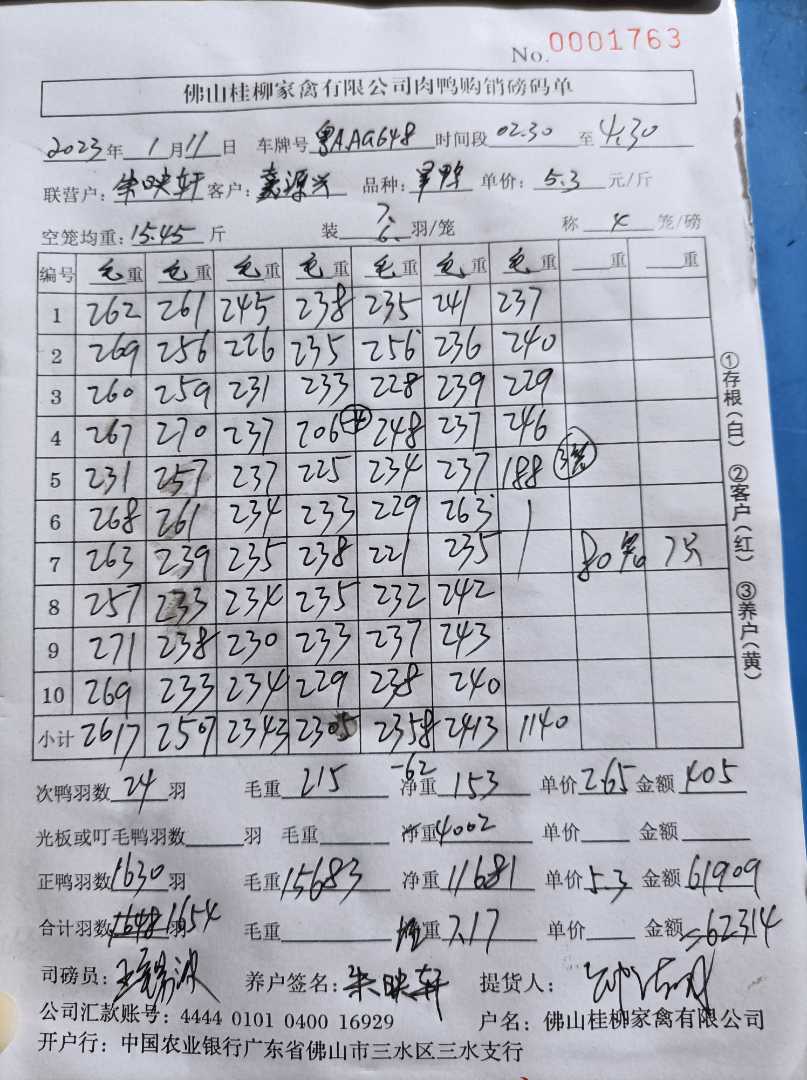 No. 0001763
佛山桂柳家禽有限公司肉鸭购销磅码单
2023年 1月11日 车牌号 粤A.AG648 时间段 02.30 至 4.30
联营户: 朱映轩 客户: 源兴 品种: 鸭 单价: 5.3 元/斤
空笼均重: 15.45 斤 装 7. 6. 羽/笼 称 4 笼/磅
编号 毛重 毛重 毛重 毛重 毛重 毛重 毛重 重 重
1 262 261 245 238 235 241 237
2 269 256 226 235 256 236 240
3 260 259 231 233 228 239 229
4 267 270 237 206 248 237 246
5 231 257 237 225 234 237 188
6 268 261 234 233 229 263
7 263 239 235 238 221 235 80笼 7只
8 257 233 234 235 232 242
9 271 238 230 233 237 243
10 269 233 234 229 238 240
小计 2617 2507 2343 2305 2358 2413 1140
次鸭羽数 24 羽 毛重 215 -62 净重 153 单价 2.65 金额 405
光板或叮毛鸭羽数 羽 毛重 净重 4002 单价 金额
正鸭羽数 1630 羽 毛重 15683 净重 11681 单价 5.3 金额 61909
合计羽数 1654 羽 毛重 重 7.17 单价 金额 62314
司磅员: 养户签名: 朱映轩 提货人:
公司汇款账号: 4444 0101 0400 16929 户名: 佛山桂柳家禽有限公司
开户行: 中国农业银行广东省佛山市三水区三水支行
①存根(白) ②客户(红) ③养户(黄)